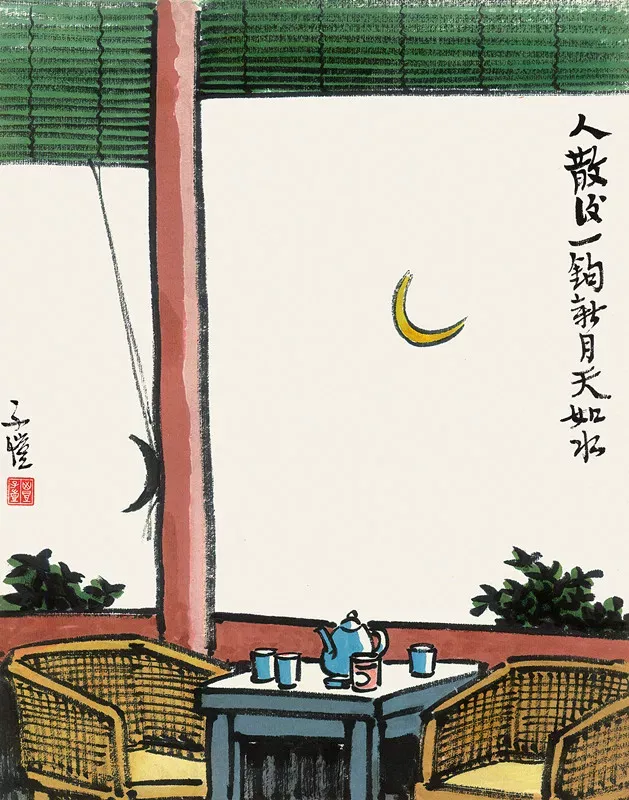 人散后一钩新月天如水
子恺